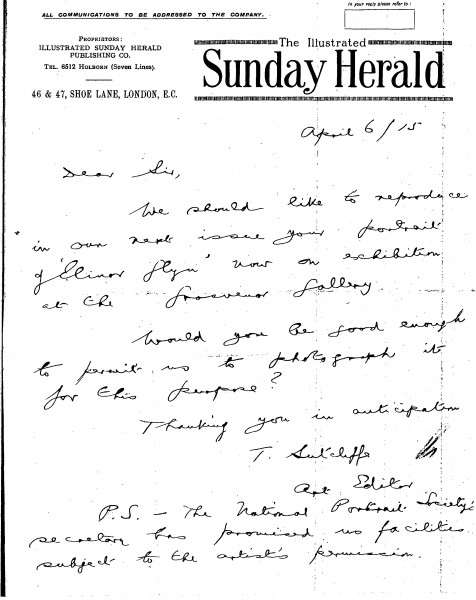 ALL COMMUNICATIONS TO BE ADDRESSED TO THE COMPANY.
In your reply please refer to :
PROPRIETORS:
ILLUSTRATED SUNDAY HERALD
PUBLISHING CO.
TEL. 6512 HOLBORN (Seven Lines).
46 & 47, SHOE LANE, LONDON, E.C.
The Illustrated
Sunday Herald
April 6/15
Dear Sir,
We should like to reproduce
in our next issue your portrait
of 'Elinor Glyn' now on exhibition
at the Grosvenor Gallery
Would you be good enough
to permit us to photograph it
for this purpose?
Thanking you in anticipation
T. Sutcliffe
Art Editor
P.S. – The National Portrait Society's
secretary has promised us facilities
subject to the artist's permission.